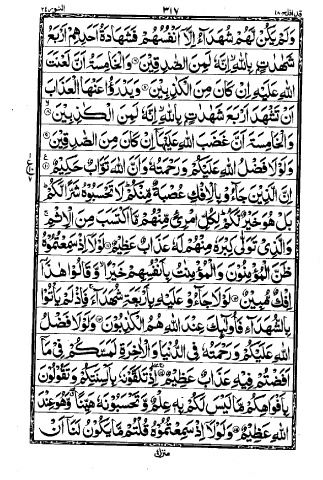 قد افلح ١٨ ٣١٧ النور ٢٤
وَلَمْ يَكُنْ لَّهُمْ شُهَدَآءُ اِلَّآ اَنْفُسُهُمْ فَشَهَادَةُ اَحَدِهِمْ اَرْبَعُ
شَهٰدٰتٍۭ بِاللّٰهِ ۙ اِنَّهٗ لَمِنَ الصّٰدِقِيْنَ ۝ وَالْخَامِسَةُ اَنَّ لَعْنَتَ
اللّٰهِ عَلَيْهِ اِنْ كَانَ مِنَ الْكٰذِبِيْنَ ۝ وَيَدْرَؤُا عَنْهَا الْعَذَابَ
اَنْ تَشْهَدَ اَرْبَعَ شَهٰدٰتٍۭ بِاللّٰهِ ۙ اِنَّهٗ لَمِنَ الْكٰذِبِيْنَ ۝
وَالْخَامِسَةَ اَنَّ غَضَبَ اللّٰهِ عَلَيْهَآ اِنْ كَانَ مِنَ الصّٰدِقِيْنَ ۝
وَلَوْلَا فَضْلُ اللّٰهِ عَلَيْكُمْ وَرَحْمَتُهٗ وَاَنَّ اللّٰهَ تَوَّابٌ حَكِيْمٌ ۝
اِنَّ الَّذِيْنَ جَآءُوْ بِالْاِفْكِ عُصْبَةٌ مِّنْكُمْ ؕ لَا تَحْسَبُوْهُ شَرًّا لَّكُمْ ؕ
بَلْ هُوَ خَيْرٌ لَّكُمْ ؕ لِكُلِّ امْرِئٍ مِّنْهُمْ مَّا اكْتَسَبَ مِنَ الْاِثْمِ ۚ
وَالَّذِيْ تَوَلّٰى كِبْرَهٗ مِنْهُمْ لَهٗ عَذَابٌ عَظِيْمٌ ۝ لَوْلَآ اِذْ سَمِعْتُمُوْهُ
ظَنَّ الْمُؤْمِنُوْنَ وَالْمُؤْمِنٰتُ بِاَنْفُسِهِمْ خَيْرًا ۙ وَّقَالُوْا هٰذَآ
اِفْكٌ مُّبِيْنٌ ۝ لَوْلَا جَآءُوْ عَلَيْهِ بِاَرْبَعَةِ شُهَدَآءَ ۚ فَاِذْ لَمْ يَاْتُوْا
بِالشُّهَدَآءِ فَاُولٰٓئِكَ عِنْدَ اللّٰهِ هُمُ الْكٰذِبُوْنَ ۝ وَلَوْلَا فَضْلُ
اللّٰهِ عَلَيْكُمْ وَرَحْمَتُهٗ فِي الدُّنْيَا وَالْاٰخِرَةِ لَمَسَّكُمْ فِيْ مَآ
اَفَضْتُمْ فِيْهِ عَذَابٌ عَظِيْمٌ ۝ اِذْ تَلَقَّوْنَهٗ بِاَلْسِنَتِكُمْ وَتَقُوْلُوْنَ
بِاَفْوَاهِكُمْ مَّا لَيْسَ لَكُمْ بِهٖ عِلْمٌ وَّتَحْسَبُوْنَهٗ هَيِّنًا ۖ وَّهُوَ عِنْدَ
اللّٰهِ عَظِيْمٌ ۝ وَلَوْلَآ اِذْ سَمِعْتُمُوْهُ قُلْتُمْ مَّا يَكُوْنُ لَنَآ اَنْ
منزل